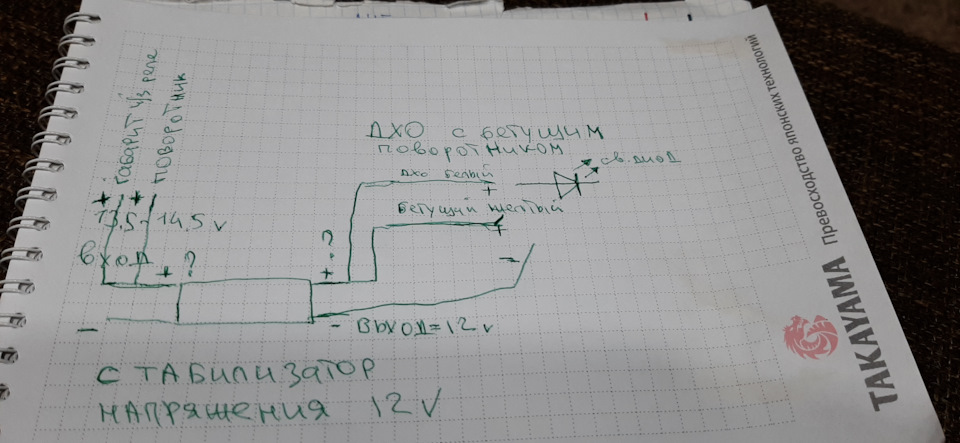 ГАБАРИТ Ч/З РЕЛЕ
ПОВОРОТНИК
ДХО С БЕГУЩИМ
ПОВОРОТНИКОМ
ДХО БЕЛЫЙ
СВ. ДИОД
+
БЕГУЩИЙ ЖЕЛТЫЙ
+
+ +
13,5 - 14,5 V
ВХОД
+ ?
? +
-
-
- ВЫХОД = 12 V
СТАБИЛИЗАТОР
НАПРЯЖЕНИЯ 12 V
TAKAYAMA Превосходство японских технологий